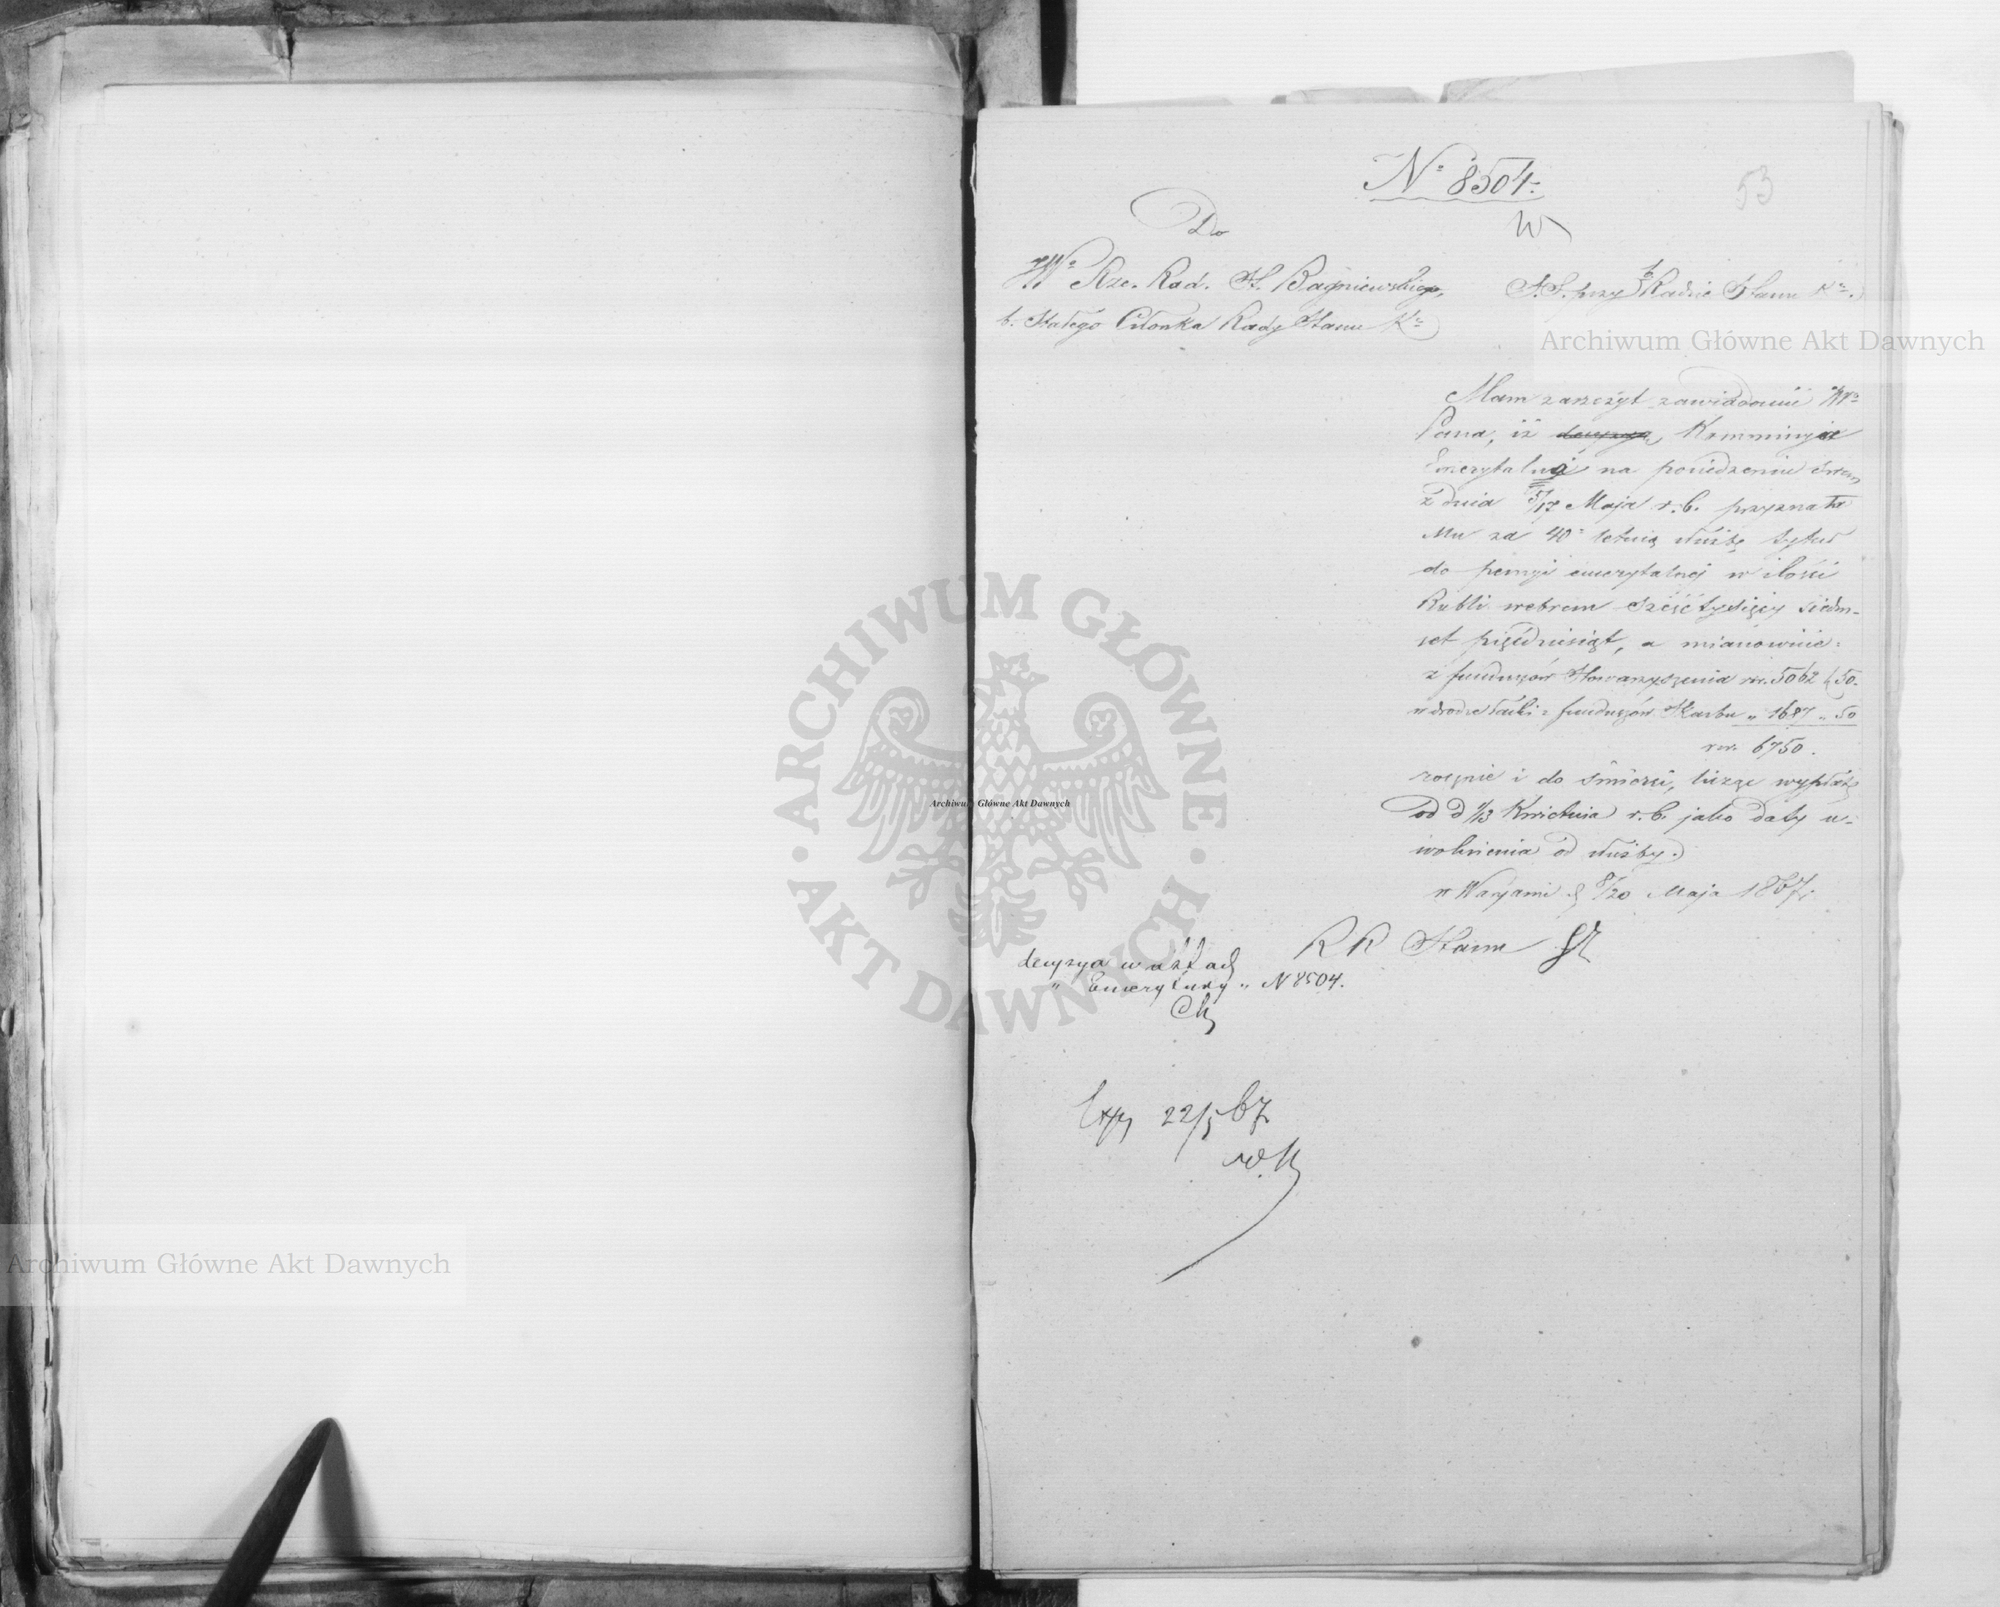 No 8504.
53
W
Do
JWo Rze. Rad. St. Bagniewskiego,
b. Stałego Członka Rady Stanu Ka
S.S. przy b. Radzie Stanu Ka.
Archiwum Główne Akt Dawnych
Mam zaszczyt zawiadomić JWo
Pana, iż decyzyą, Kommissya
Emerytalna na posiedzeniu swem
z dnia 5/17 Maja r.b. przyznała
Mu za 40o letnią służbę tytuł
do pensyi emerytalnej w ilości
Rubli srebrem sześć tysięcy siedm-
set pięćdziesiąt, a mianowicie:
z funduszów Stowarzyszenia rsr. 5062 k 50.
w drodze łaski z funduszów Skarbu „ 1687 „ 50
rsr. 6750.
rocznie i do śmierci, licząc wypłatę
od d 1/13 Kwietnia r.b. jako daty u-
wolnienia od służby.
w Warszawie d 8/20 Maja 1867.
R R Stanu
decyzya w aktach
„ Emerytury „ N 8504.
Exp 22/5 67
ARCHIWUM GŁÓWNE
AKT DAWNYCH
Archiwum Główne Akt Dawnych
Archiwum Główne Akt Dawnych